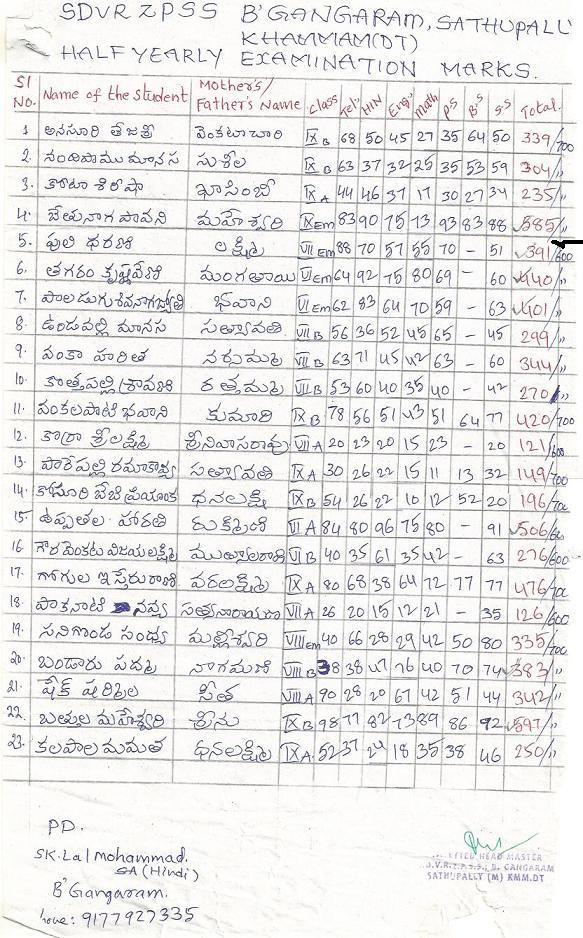 SDVR ZPSS B'GANGARAM, SATHUPALLI
KHAMMAM(DT)
HALF YEARLY EXAMINATION MARKS.
Sl No. Name of the student Mother's/ Father's Name class Tel" HIN Eng" Math PS B'S SS Total.
1 అనసూరి తేజశ్రీ వెంకటాచారి IX B 68 50 45 27 35 64 50 339/700
2. నందిపాము మానస సుశీల IX B 63 37 32 25 35 53 59 304/"
3. కోటా శిరీషా ఖాసింబీ IX A 44 46 37 17 30 27 34 235/"
4. జేతునాగ పావని మహేశ్వరి IX Em 83 90 75 73 93 83 88 585/"
5. పులి ధరణి లక్ష్మి VII Em 88 70 57 55 70 - 51 391/600
6. తగరం కృష్ణవేణి మంగతాయి VI Em 64 92 75 80 69 - 60 440/"
7. పాలడుగు శివనాగజ్యోతి భవాని VI Em 62 83 64 70 59 - 63 401/"
8. ఉండవల్లి మానస సత్యావతి VII B 56 36 52 45 65 - 45 299/"
9. వంకా హరిత నర్సమ్మ VII B 63 71 45 42 63 - 60 344/"
10. కొత్తపల్లి శ్రావణి రత్తమ్మ VII B 53 60 40 35 40 - 42 270/"
11. వంకలపాటి భవాని కుమారి IX B 78 56 51 43 51 64 77 420/700
12. కొర్రా శ్రీలక్ష్మి శ్రీనివాసరావు VII A 20 23 20 15 23 - 20 121/600
13. పారేపల్లి రమాకావ్య సత్యావతి IX A 30 26 22 15 11 13 32 149/700
14. కాసూరి బేబి ప్రియాంక ధనలక్ష్మి IX B 54 26 22 10 12 52 20 196/700
15. ఉప్పుతల హారతి రుక్మిణి VI A 84 80 96 75 80 - 91 506/600
16 గౌర వెంకట విజయలక్ష్మి ముత్యాలరాణి VI B 40 35 61 35 42 - 63 276/600
17. గోగుల ఇస్తేరురాణి వరలక్ష్మి IX A 80 68 38 64 72 77 77 476/700
18. పాకనాటి నవ్య సత్యనారాయణ VII A 26 20 15 12 21 - 35 126/600
19. సనిగొండ సంధ్య మల్లీశ్వరి VIII Em 40 66 28 29 42 50 80 335/700
20. బండారు పద్మ నాగమణి VIII B 38 38 47 76 40 70 74 383/"
21. షేక్ షర్మిల సీత VIII A 90 28 20 67 42 51 44 342/"
22. బత్తుల మహేశ్వరి శ్రీను IX B 98 77 82 73 89 86 92 597/"
23. కలపాల మమత ధనలక్ష్మి IX A 52 37 24 18 35 38 46 250/"
PD.
SK. Lal Mohammad.
SA (Hindi)
B'Gangaram.
9177927335
HEAD MASTER
B. GANGARAM
SATHUPALLY (M) KMM.DT